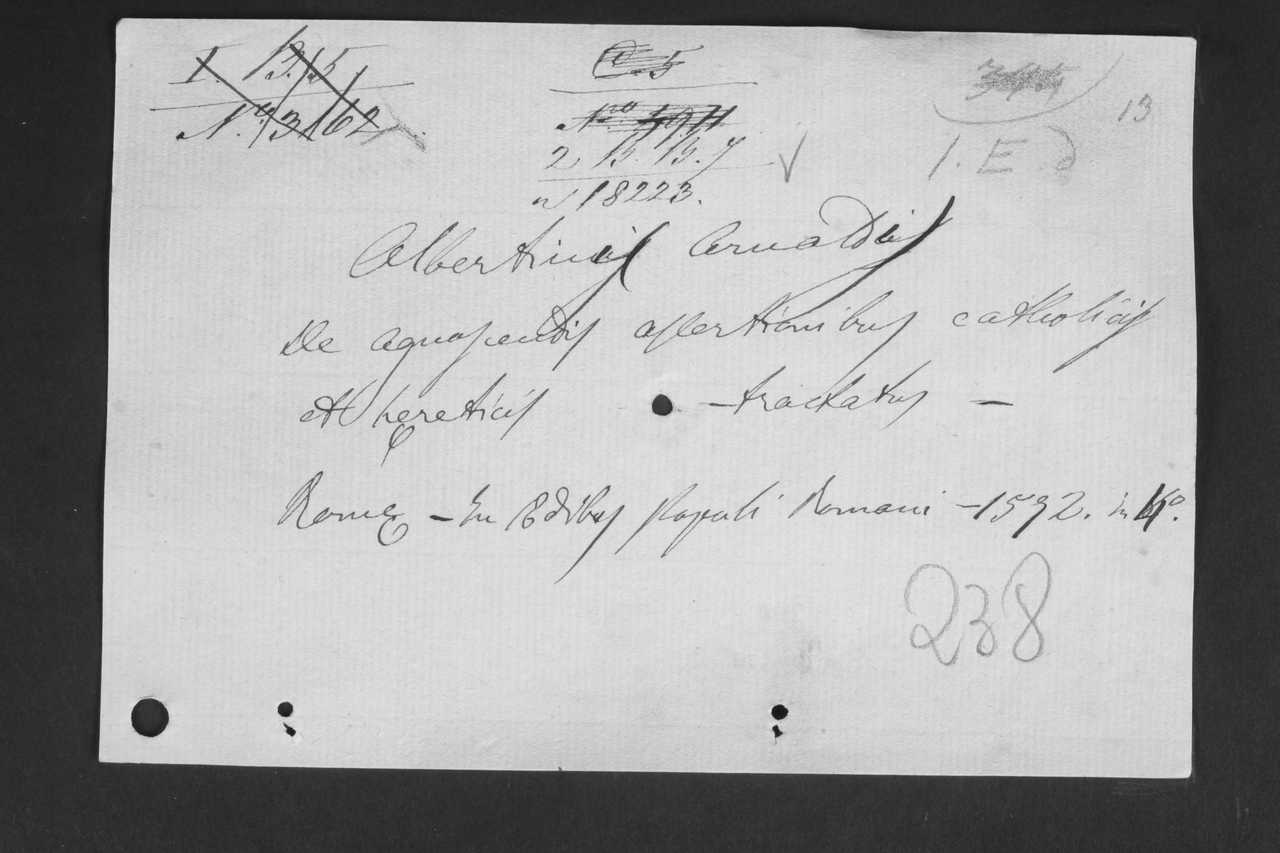 I. 13.15
N.º 13162
C. 5
2 13. 13. 7
nº 18223.
13
1. E.
Albertinus Arnaldus
De agnoscendis assertionibus catholicis
et hereticis tractatus —
Rome — In Edibus Populi Romani — 1592. in 4º.
238